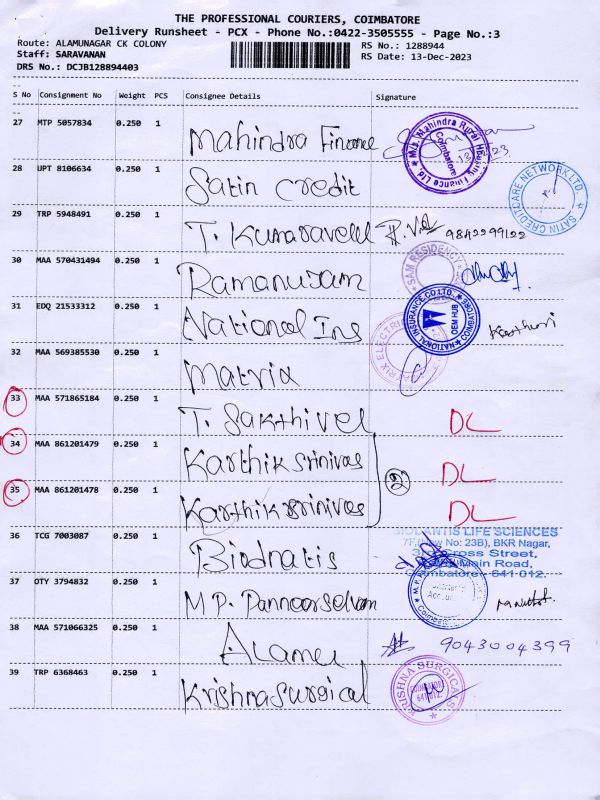 THE PROFESSIONAL COURIERS, COIMBATORE
Delivery Runsheet - PCX - Phone No.:0422-3505555 - Page No.:3
Route: ALAMUNAGAR CK COLONY
RS No.: 1288944
Staff: SARAVANAN
RS Date: 13-Dec-2023
DRS No.: DCJB128894403
S No Consignment No Weight PCS Consignee Details Signature
27 MTP 5057834 0.250 1 Mahindra Finance
M/s. Mahindra Rural Housing Finance Ltd Coimbatore
28 UPT 8106634 0.250 1 Satin Credit
SATIN CREDITCARE NETWORK LTD.
29 TRP 5948491 0.250 1 T. Kumaravelu 9842299122
30 MAA 570431494 0.250 1 Ramanujam
SAM RESIDENCY
31 EDQ 21533312 0.250 1 National Ins
NATIONAL INSURANCE CO.LTD. COIMBATORE OEM HUB
32 MAA 569385530 0.250 1 Matrix
33 MAA 571865184 0.250 1 T. Sakthivel DL
34 MAA 861201479 0.250 1 Karthik Srinivas DL
2
35 MAA 861201478 0.250 1 Karthik Srinivas DL
36 TCG 7003087 0.250 1
LIFE SCIENCES
No: 23B), BKR Nagar,
Cross Street,
Main Road,
Coimbatore - 641 012.
37 OTY 3794832 0.250 1 M.P. Panneerselvam
38 MAA 571066325 0.250 1 Alamu 9043004399
39 TRP 6368463 0.250 1 Krishna Surgical
KRISHNA SURGICALS COIMBATORE 641 012.